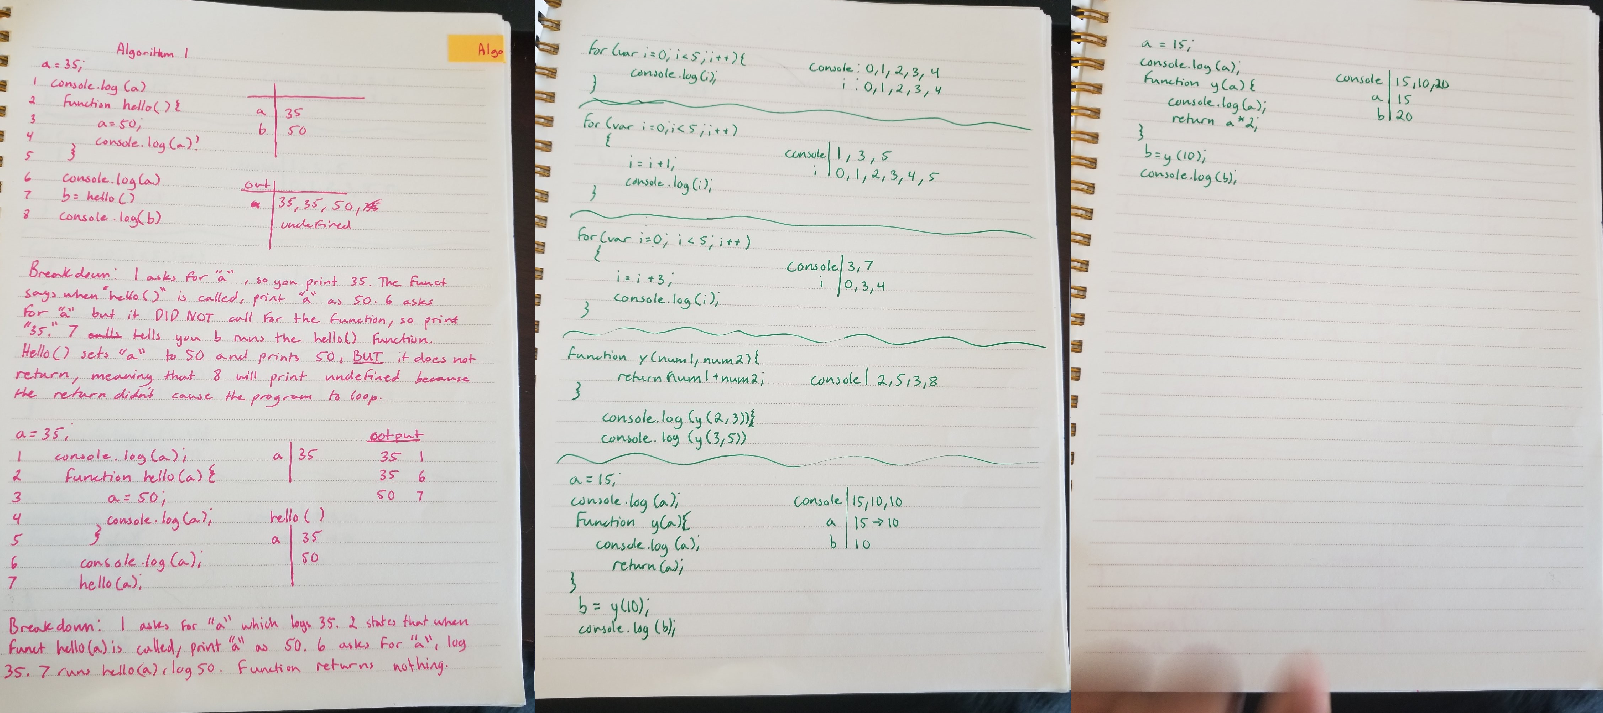 Algorithm 1
Algo
a = 35;
1 console.log (a)
2 function hello() {
3 a=50;
4 console.log (a)!
5 }
a 35
b 50
6 console.log(a)
7 b = hello()
8 console.log(b)
out
35, 35, 50,
undefined
Breakdown: 1 asks for "a", so you print 35. The funct
says when "hello()" is called, print "a" as 50. 6 asks
for "a" but it DID NOT call for the function, so print
"35." 7 tells you b runs the hello() function.
Hello() sets "a" to 50 and prints 50, BUT it does not
return, meaning that 8 will print undefined because
the return didn't cause the program to loop.
a = 35;
1 console.log (a);
2 function hello(a) {
3 a = 50;
4 console.log (a);
5 }
6 console.log (a);
7 hello(a);
a 35
output
35 1
35 6
50 7
hello( )
a 35
50
Breakdown: 1 asks for "a" which logs 35. 2 states that when
funct hello(a) is called, print "a" as 50. 6 asks for "a", log
35. 7 runs hello(a), log 50. Function returns nothing.
for (var i=0; i<5; i++) {
console.log(i);
}
console: 0,1,2,3,4
i: 0,1,2,3,4
for (var i=0; i<5; i++)
{
i = i+1;
console.log(i);
}
console 1, 3, 5
i 0,1,2,3,4,5
for (var i=0; i<5; i++)
{
i = i+3;
console.log(i);
}
console 3,7
i 0,3,4
function y (num1, num2) {
return num1+num2;
}
console 2,5,3,8
console.log (y(2,3))}
console.log (y(3,5))
a = 15;
console.log (a);
function y(a){
console.log (a);
return (a);
}
b = y(10);
console.log (b);
console 15,10,10
a 15 → 10
b 10
a = 15;
console.log (a);
function y(a) {
console.log (a);
return a*2;
}
b = y(10);
console.log (b);
console 15,10,20
a 15
b 20